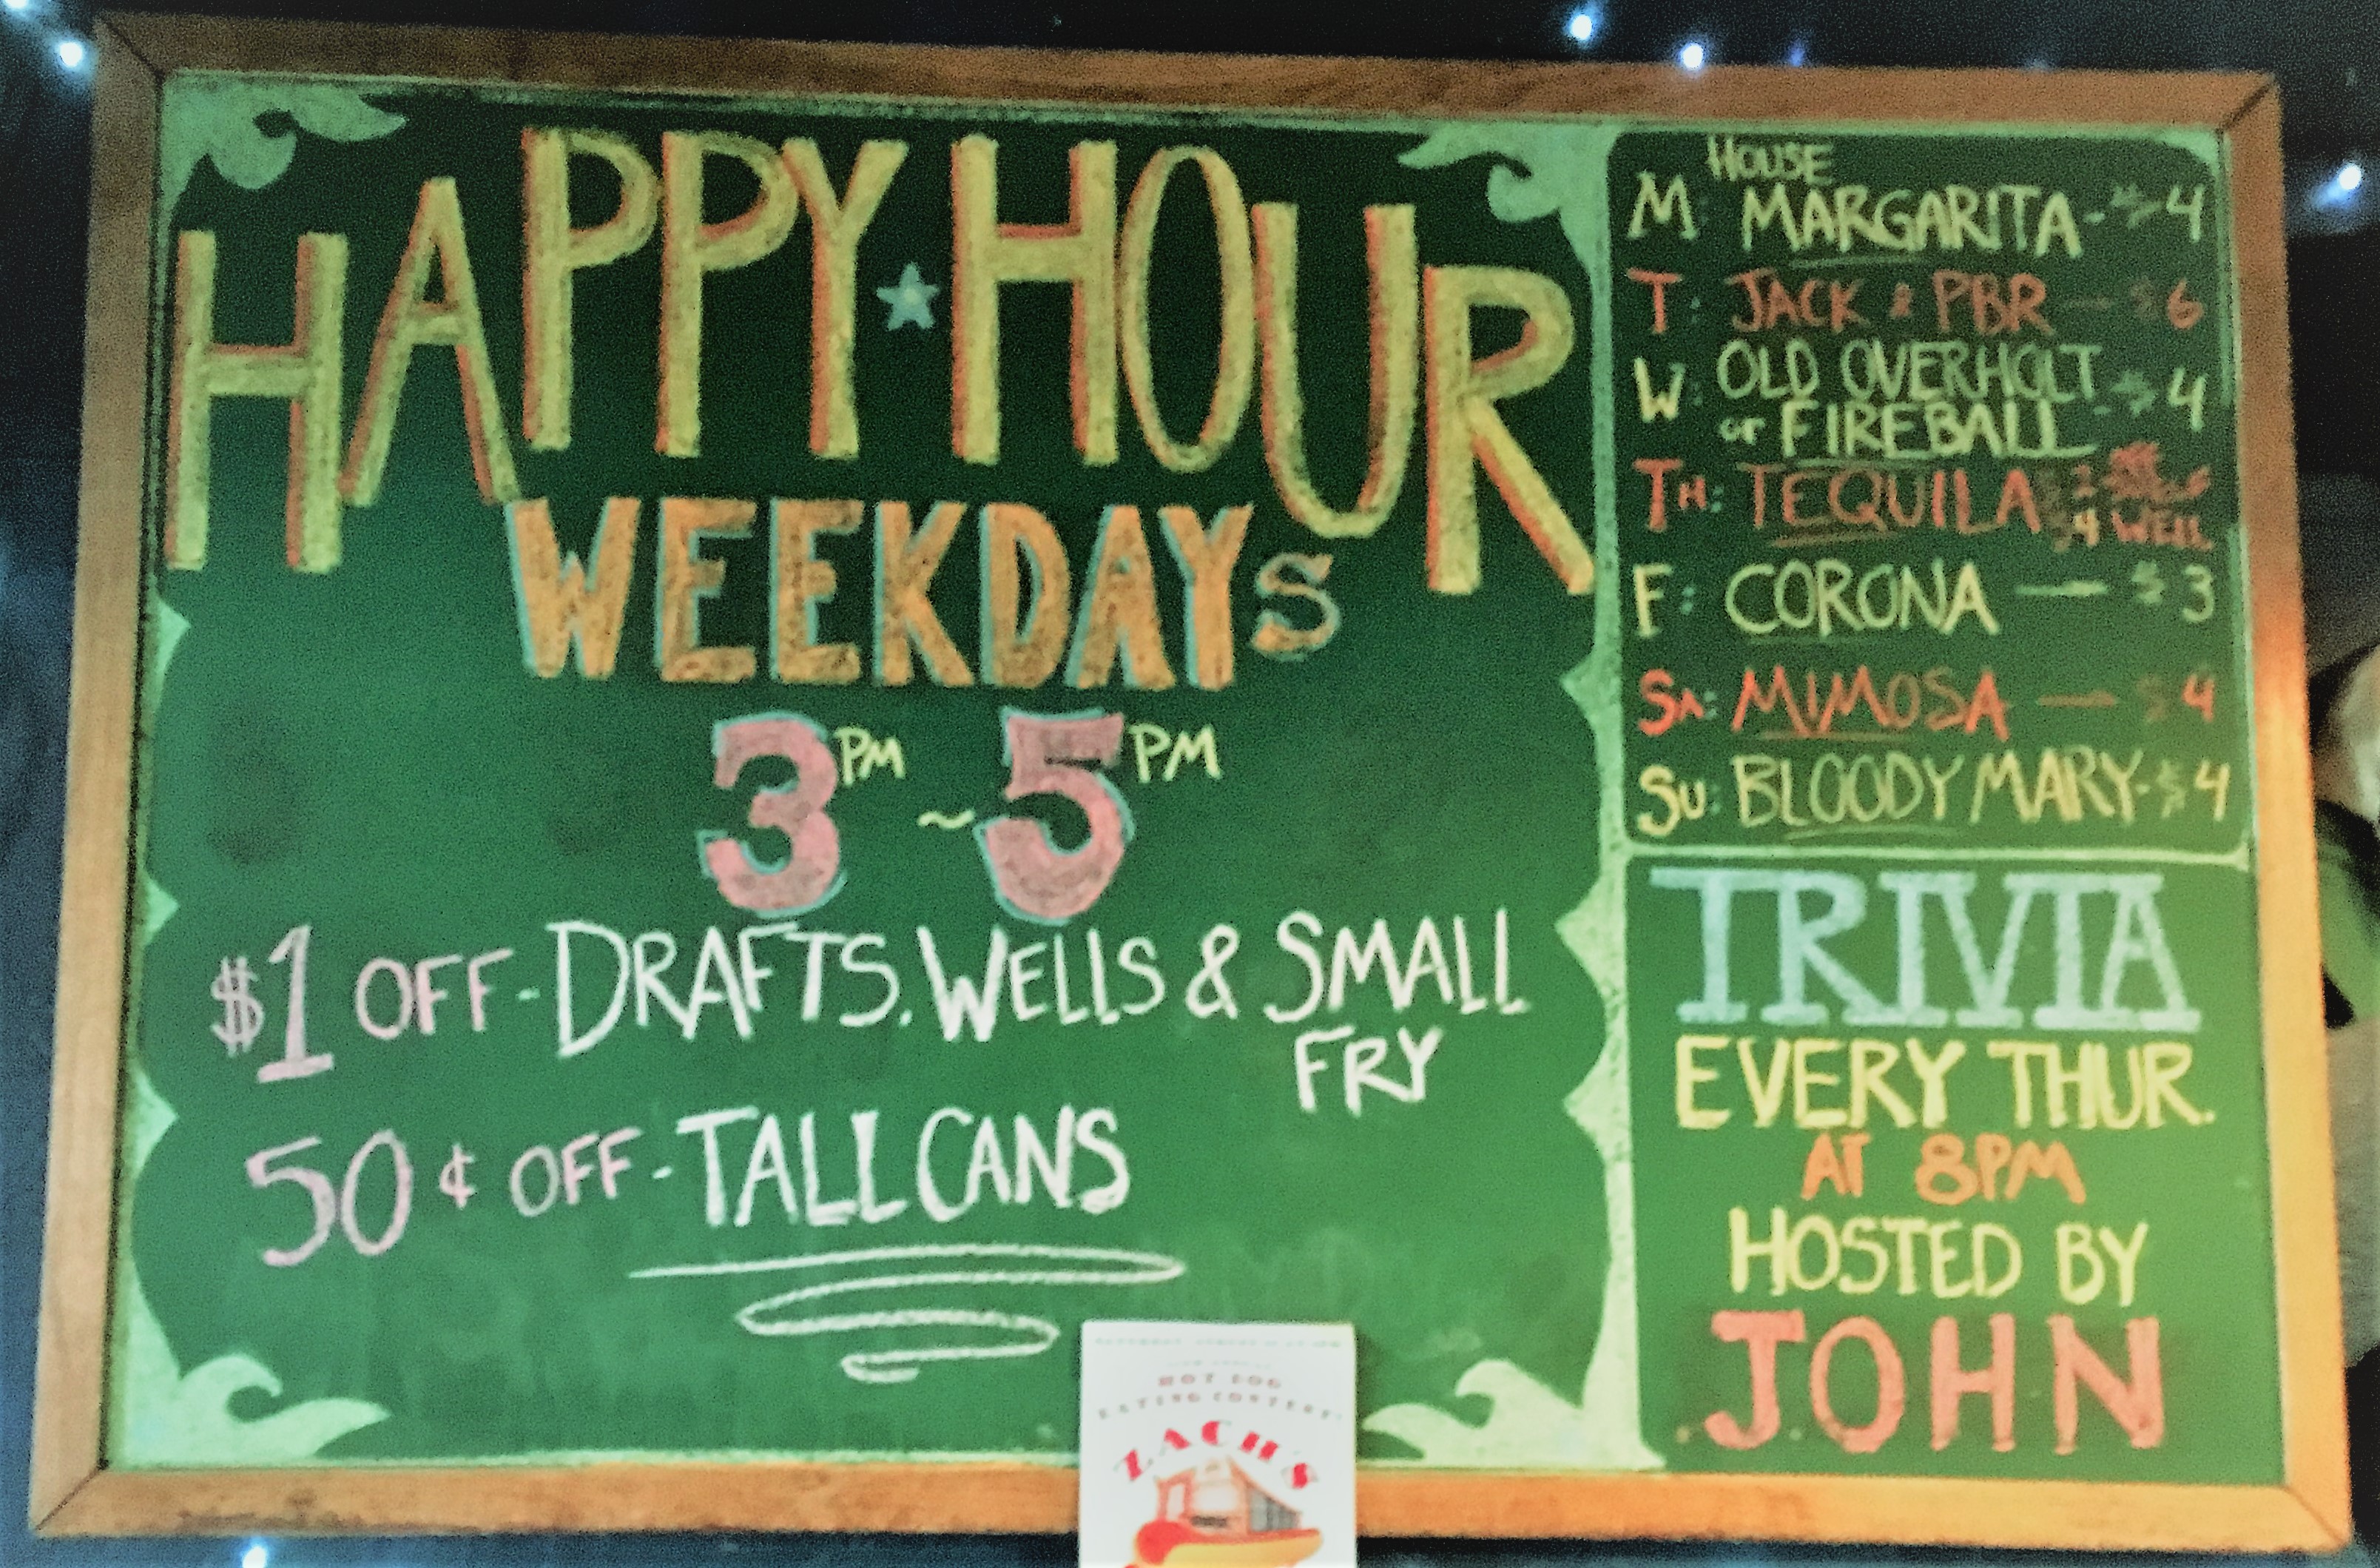 HAPPY HOUR
WEEKDAYS
3PM ~ 5PM
$1 OFF - DRAFTS, WELLS & SMALL
FRY
50¢ OFF - TALL CANS
HOUSE
M: MARGARITA - $4
T: JACK & PBR — $6
W: OLD OVERHOLT - $4
or FIREBALL
TH: TEQUILA $2 OFF
$4 WELL
F: CORONA — $3
SA: MIMOSA — $4
SU: BLOODY MARY - $4
TRIVIA
EVERY THUR.
AT 8PM
HOSTED BY
JOHN
HOT DOG
EATING CONTEST!
ZACH'S